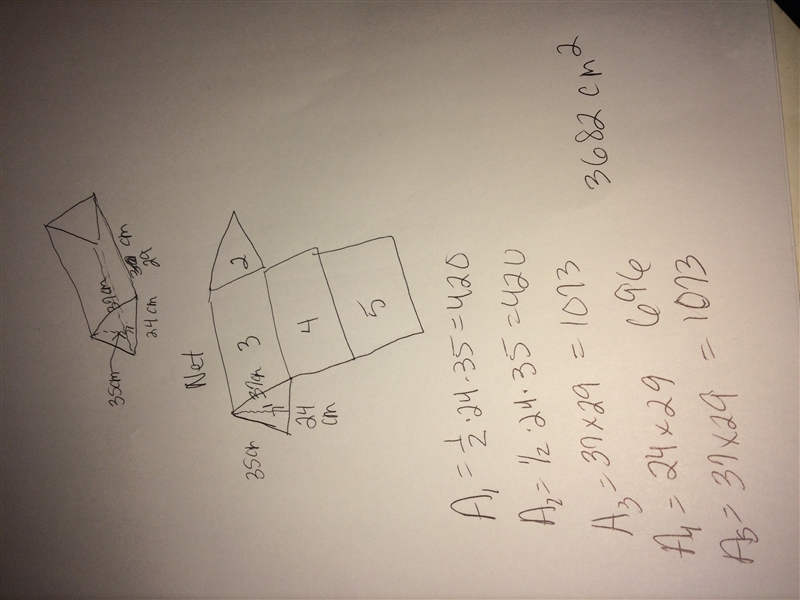 35cm
37cm
24cm
29 cm
Net
35cm
37cm
24
cm
3
2
4
5
A₁ = ½ · 24 · 35 = 420
A₂ = ½ · 24 · 35 = 420
A₃ = 37 × 29 = 1073
A₄ = 24 × 29 696
A₅ = 37 × 29 = 1073
3682 cm²